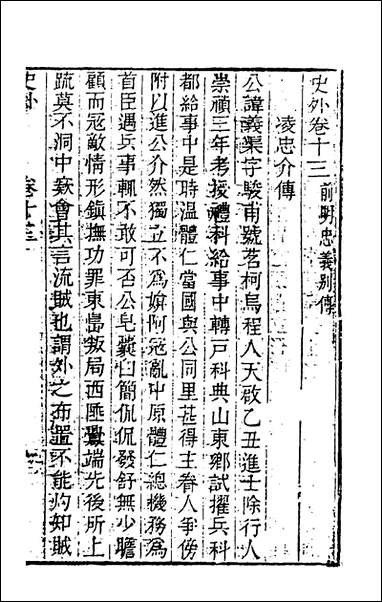 史外卷十三 前明忠義別傳
凌忠介傳
公諱義渠字駿甫號茗柯烏程人天啟乙丑進士除行人
崇禎三年考授禮科給事中轉戶科典山東鄉試擢兵科
都給事中是時溫體仁當國與公同里甚得主眷人爭傍
附以進公介然獨立不為媕阿寇亂中原體仁總機務為
首臣遇兵事輒不敢可否公皂囊白簡侃侃發舒無少瞻
顧而寇敵情形鎮撫功罪東島叛局西匪釁端先後所上
疏莫不洞中窾會其言流賊也謂外之布置不能灼知賊
史外
卷十三